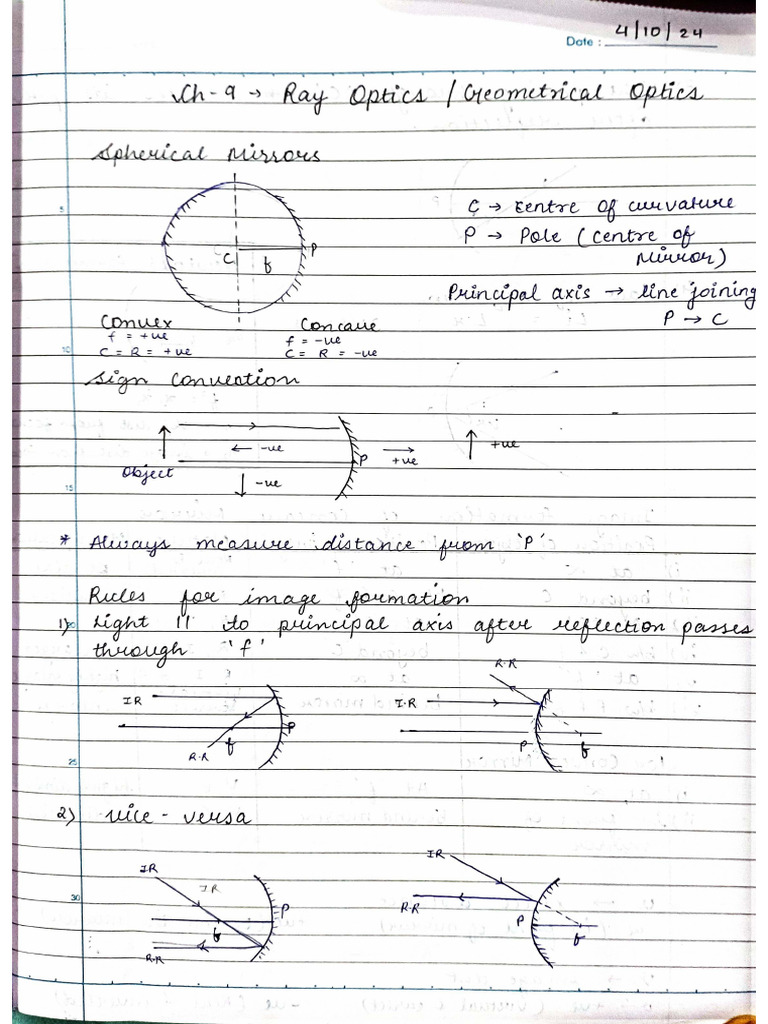 Date : 4/10/24
Ch-9 → Ray Optics / Geometrical Optics
Spherical Mirrors
C → Centre of curvature
P → Pole (centre of mirror)
Principal axis → line joining
P → C
C
f
P
Convex
f = +ve
C = R = +ve
Concave
f = -ve
C = R = -ve
Sign Convention
Object
← -ve
↓ -ve
P
→ +ve
↑ +ve
* Always measure distance from 'P'
Rules for image formation
1) Light || to principal axis after reflection passes
through 'f'
IR
R.R
f
P
I.R
R.R
P
f
2) vice - versa
IR
IR
f
P
R.R
IR
R.R
P
f
5
10
15
20
25
30